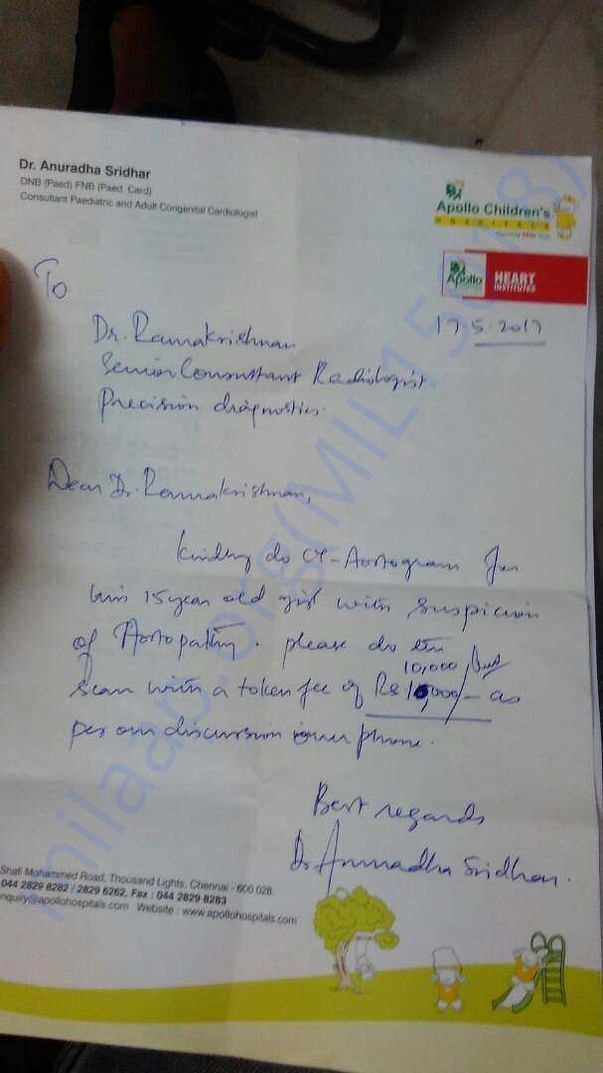 Dr. Anuradha Sridhar
DNB (Paed) FNB (Paed. Card)
Consultant Paediatric and Adult Congenital Cardiologist
Apollo Children's
HOSPITALS
Apollo
HEART
INSTITUTES
17.5.2017
To
Dr. Ramakrishnan
Senior Consultant Radiologist
Precision diagnostics.
Dear Dr. Ramakrishnan,
Kindly do CT-Aortogram for
this 15 year old girl with suspicion
of Aortopathy. please do the
10,000
scan with a token fee of Rs 10,000/- as
per our discussion over phone.
Best regards
Dr Anuradha Sridhar.
Shafi Mohammed Road, Thousand Lights, Chennai - 600 028
044 2829 8282 / 2829 6262, Fax : 044 2829 8283
enquiry@apollohospitals.com Website : www.apollohospitals.com
milaap.org(MIL